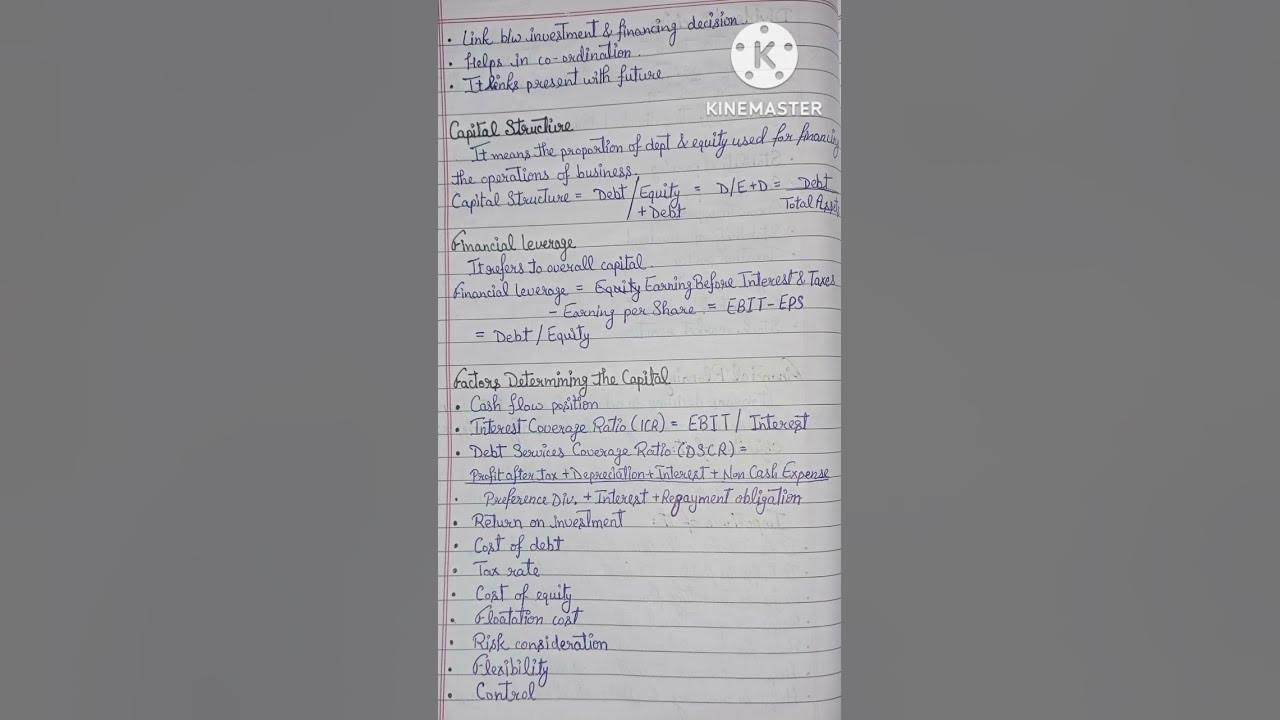 • Link b/w investment & financing decision.
• Helps in co-ordination.
• It links present with future
KINEMASTER
Capital Structure
It means the proportion of dept & equity used for financing
the operations of business.
Capital Structure = Debt / Equity + Debt = D/E+D = Debt / Total Assets
Financial Leverage
It refers to overall capital.
Financial Leverage = Equity Earning Before Interest & Taxes
- Earning per Share = EBIT - EPS
= Debt / Equity
Factors Determining the Capital
• Cash flow position
• Interest Coverage Ratio (ICR) = EBIT / Interest
• Debt Services Coverage Ratio (DSCR) =
Profit after tax + Depreciation + Interest + Non Cash Expense
• Preference Div. + Interest + Repayment obligation
• Return on investment
• Cost of debt
• Tax rate
• Cost of equity
• Floatation cost
• Risk consideration
• Flexibility
• Control